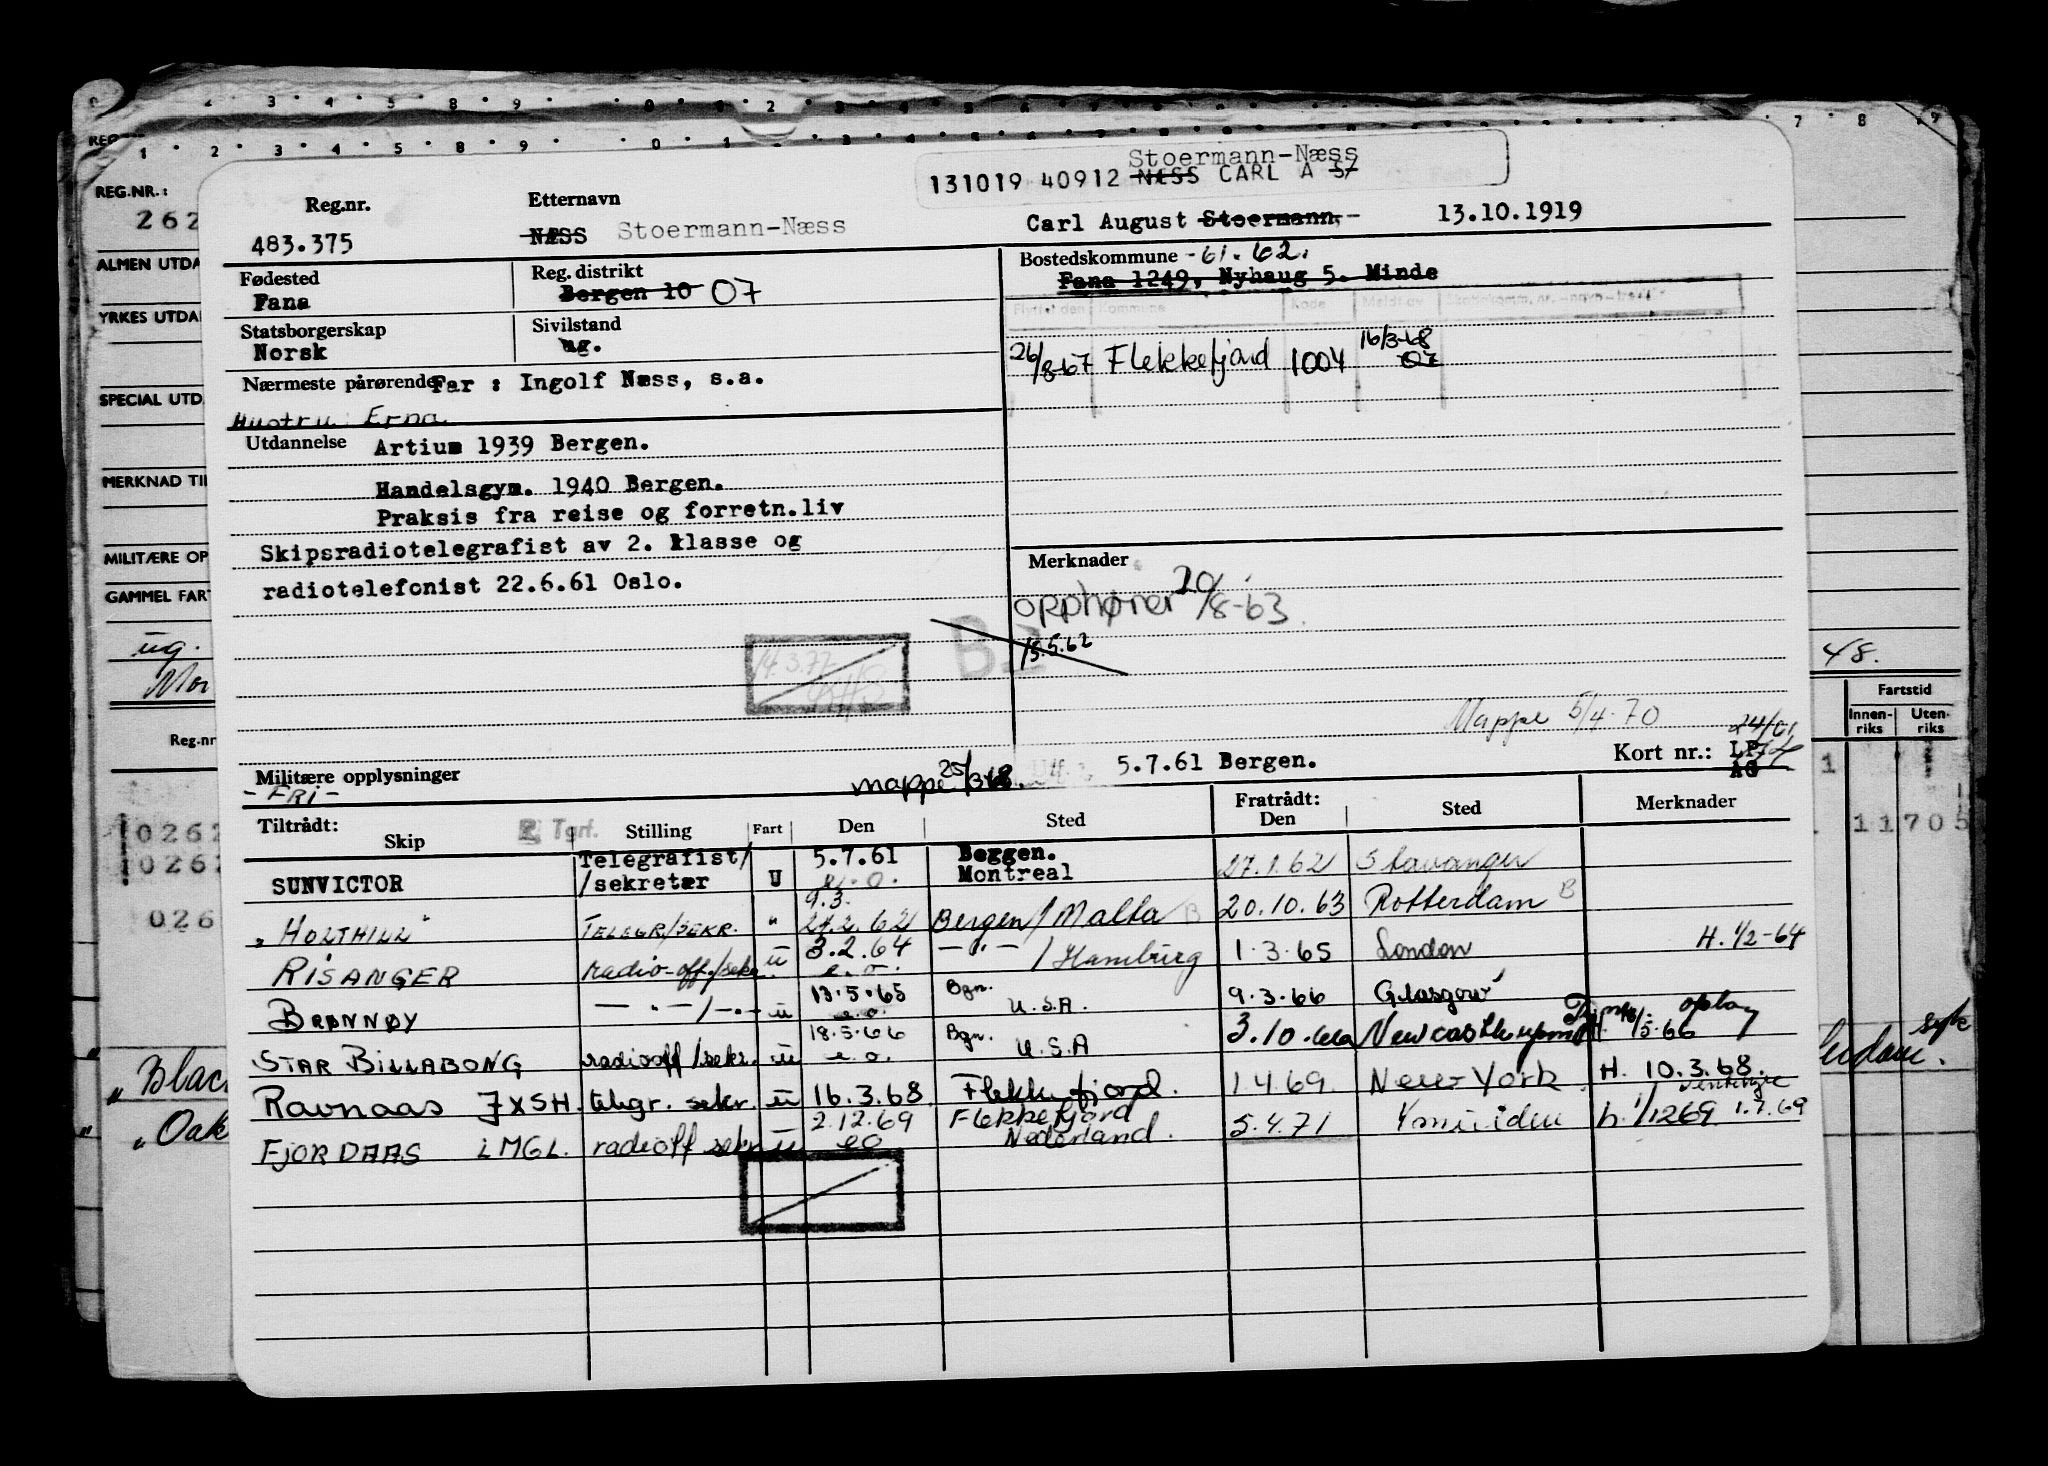 Stoermann-Næss
131019 40912 NÆSS CARL A 57
Reg.nr. Etternavn
483.375 NÆSS Stoermann-Næss Carl August Stoermann- 13.10.1919
Fødested Reg. distrikt Bostedskommune -61.62.
Fana Bergen 10 07 Fana 1249, Nyhaug 5. Minde
Statsborgerskap Sivilstand
Norsk ug.
26/8-67 Flekkefjord 1004 16/3-68 07
Nærmeste pårørende Far : Ingolf Næss, s.a.
Hustru: Erna
Utdannelse Artium 1939 Bergen.
Handelsgym. 1940 Bergen.
Praksis fra reise og forretn.liv
Skipsradiotelegrafist av 2. klasse og
radiotelefonist 22.6.61 Oslo.
Merknader
opphører 20/8-63.
15.5.62
B2
14.3.77
Mappe 5/4-70
24/61
Militære opplysninger mappe 25/3-68. 5.7.61 Bergen. Kort nr.: LP/
- FRI - AG
Tiltrådt: Fratrådt:
Skip Stilling Fart Den Sted Den Sted Merknader
SUNVICTOR Telegrafist/ /sekretær U 5.7.61 e.o. Bergen. Montreal 27.1.62 Stavanger
"HOLTHILL" TELEGR/SEKR. " 9.3. 27.2.62 Bergen/Malta B 20.10.63 Rotterdam B
RISANGER radio-off./sekr. u 3.2.64 e.o. — " — /Hamburg 1.3.65 London H. 1/2-64
BRØNNØY — . — / — . — u 13.5.65 e.o. Bgn. U.S.A. 9.3.66 Glasgow
STAR BILLABONG radioff/sekr. u 18.5.66 e.o. Bgn. U.S.A 3.10.66 Newcastle upon T. H. 18/5-66 oplag
Ravnaas JXSH. telegr. sekr. u 16.3.68 Flekkefjord. 1.4.69 New York H. 10.3.68.
FJORDAAS LMGL. radioff sekr u 2.12.69 eo Flekkefjord Nederland. 5.4.71 Ymuiden h. 1/1269 1.7.69
REG.NR.:
262
ALMEN UTDA
YRKES UTDA
SPECIAL UTD
MERKNAD TIL
MILITÆRE OP
GAMMEL FART
ug.
48.
Fartstid
Innen-riks Uten-riks
Reg.nr
0262
0262
026
11705
"Blac
"Oak